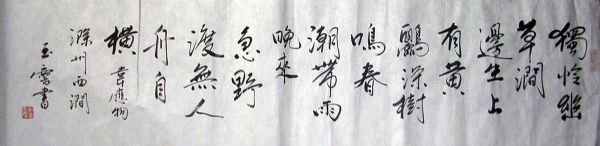 獨怜幽
草澗
邊生上
有黃
鸝深樹
鳴春
潮帶雨
晚來
急野
渡無人
舟自
橫
韋應物
滁州西澗
玉書